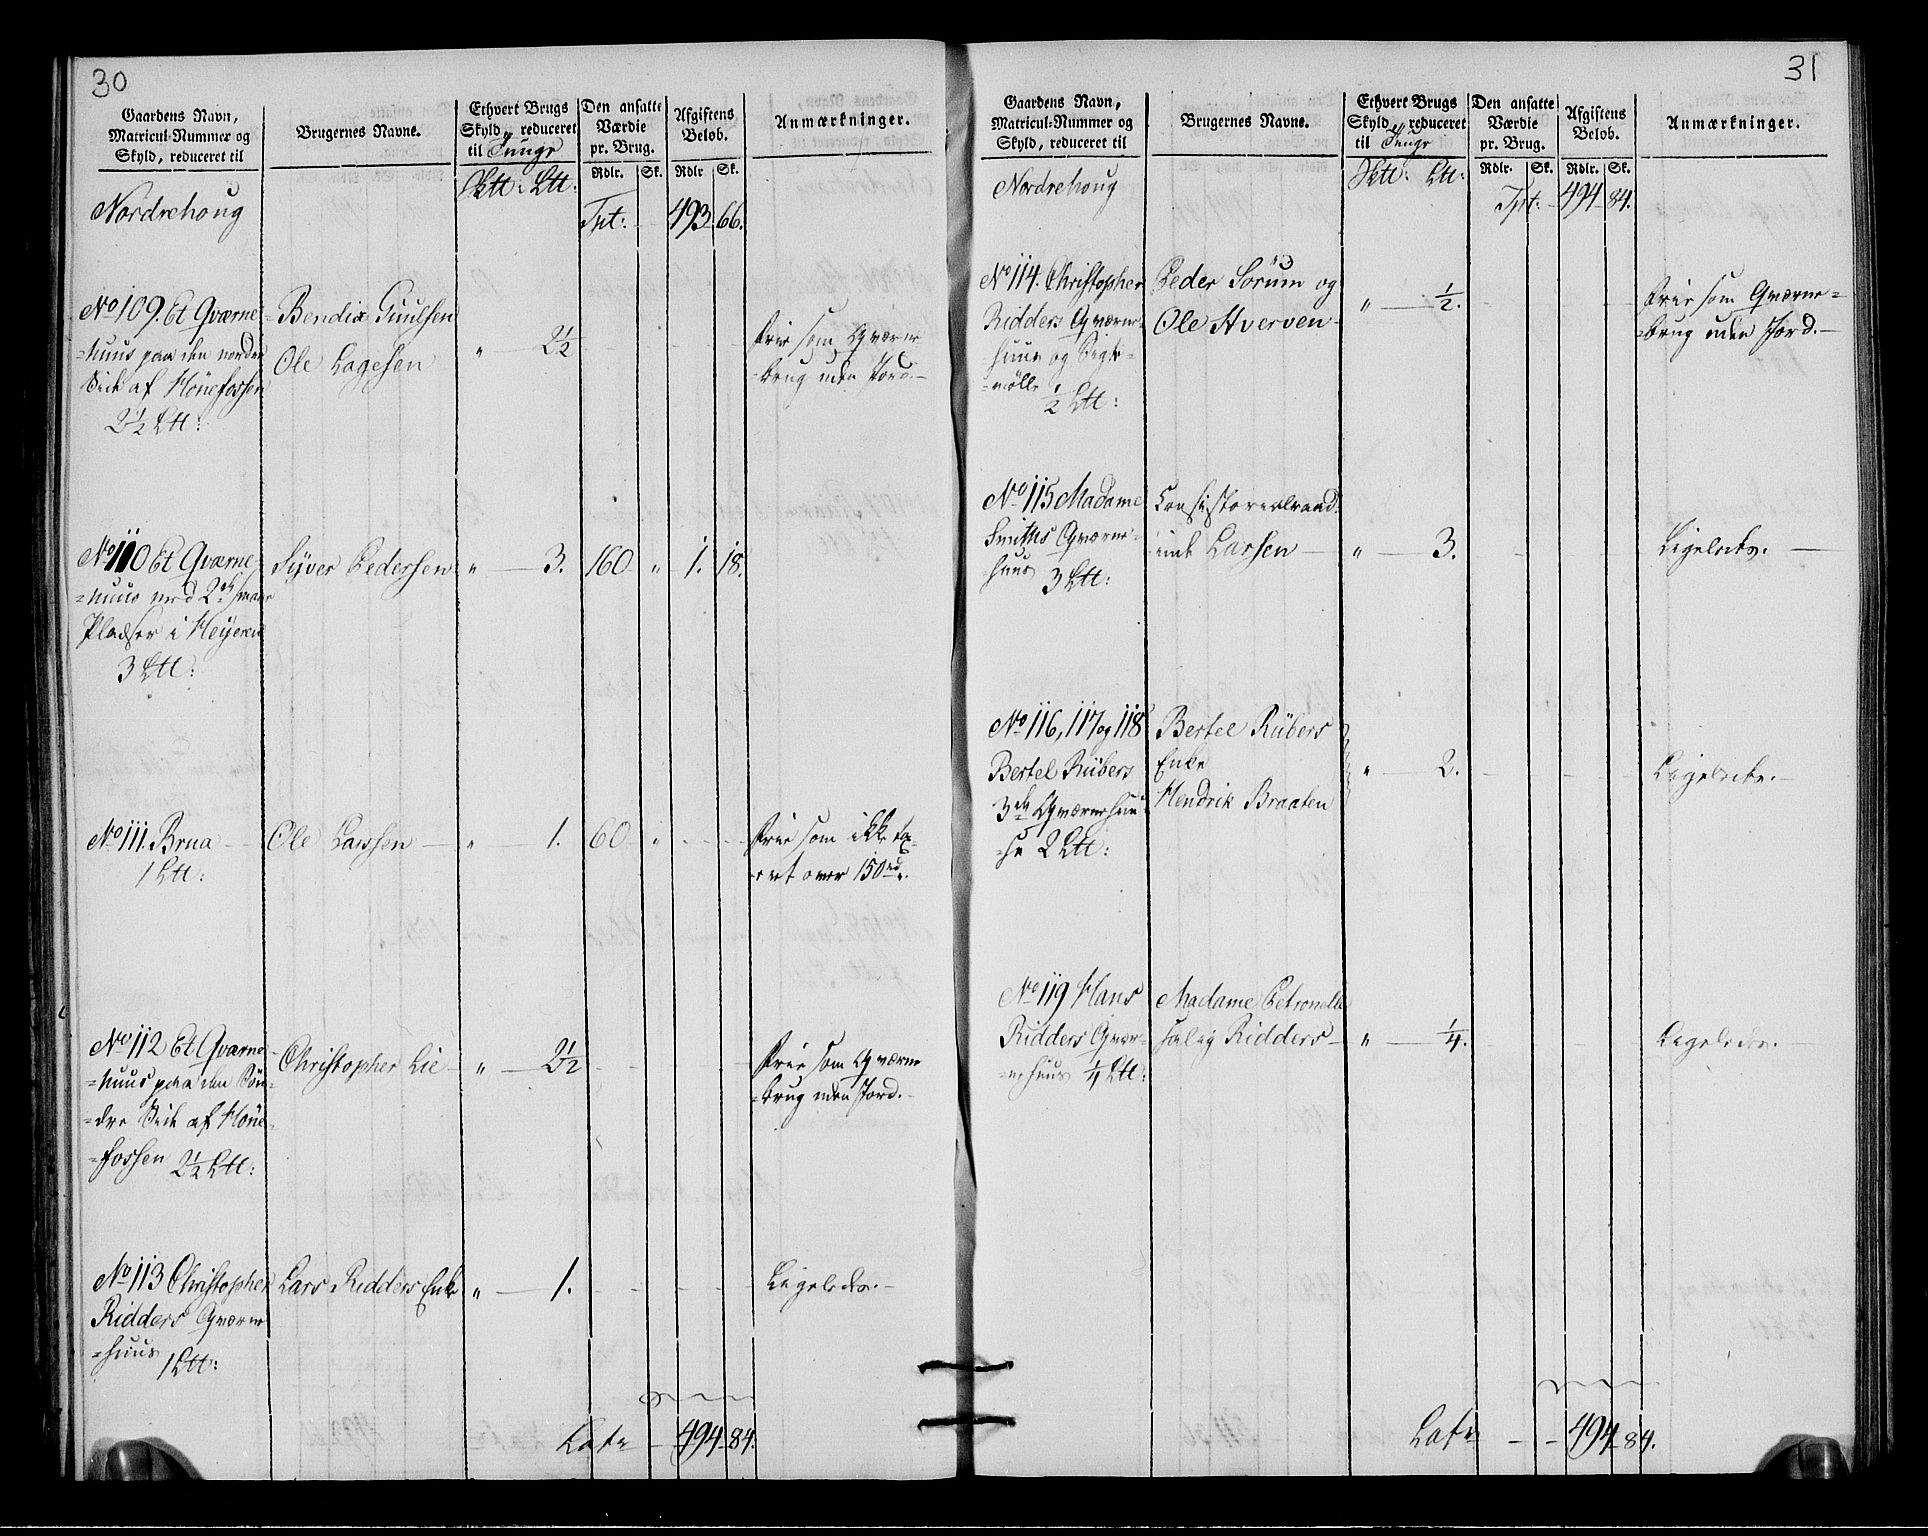 30
Gaardens Navn,
Matricul-Nummer og
Skyld, reduceret til
Brugernes Navne.
Ethvert Brugs
Skyld, reduceret
til Tunge
Den ansatte
Værdie
pr. Brug.
Afgiftens
Beløb.
Anmærkninger.
Rdlr. Sk. Rdlr Sk.
Nordrehoug
Sktt: Ltt:
Tpt: 493. 66.
No 109. Et Qværne-
=huus paa den nordre
Side af Hönefossen
2½ Ltt:
Bendix Guulsen
Ole Lagesen
" 2½
Frie som Qværne
=brug uden Jord.
No 110 Et Qværne
=huus med 2de smaae
Pladser i Heyeren
3 Ltt:
Syver Pedersen
" 3. 160 " 1. 18.
No 111. Brua
1 Ltt:
Ole Larssen
" 1. 60 "
Frie som ikke tax-
eret over 150 rd.
No 112 Et Qværne
=huus paa den Sön-
=dre Side af Höne-
=fossen 2½ Ltt:
Christopher Lie
" 2½
Frie som Qværne
=brug uden Jord.
No 113 Christopher
Ridders Qværne
=huus 1 Ltt:
Lars Ridders Enke
" 1.
Ligeledes.
Latr 494. 84.
31
Gaardens Navn,
Matricul-Nummer og
Skyld, reduceret til
Brugernes Navne.
Ethvert Brugs
Skyld, reduceret
til Tunge
Den ansatte
Værdie
pr. Brug.
Afgiftens
Beløb.
Anmærkninger.
Rdlr. Sk. Rdlr. Sk.
Nordrehoug
Sktt: Ltt:
Tpt: 494. 84.
No 114. Christopher
Ridders Qværne-
=huus og Sigte-
=mölle
½ Ltt:
Peder Sörum og
Ole Hverven
" ½.
Frie som Qværne=
=brug uden Jord.
No 115 Madame
Smiths Qværne-
huus 3 Ltt:
Consistorialraad
=inde Larsen
" 3.
Ligeledes.
No 116, 117 og 118
Bertel Rübers
3de Qværnehuu-
=se 2 Ltt:
Bertel Rübers
Enke
Hendrik Braaten
" 2.
Ligeledes.
No 119 Hans
Ridders Qvær-
=nehuus ¼ Ltt:
Madame Petronelle
salig Ridders
" ¼.
Ligeledes.
Latr 494. 84.